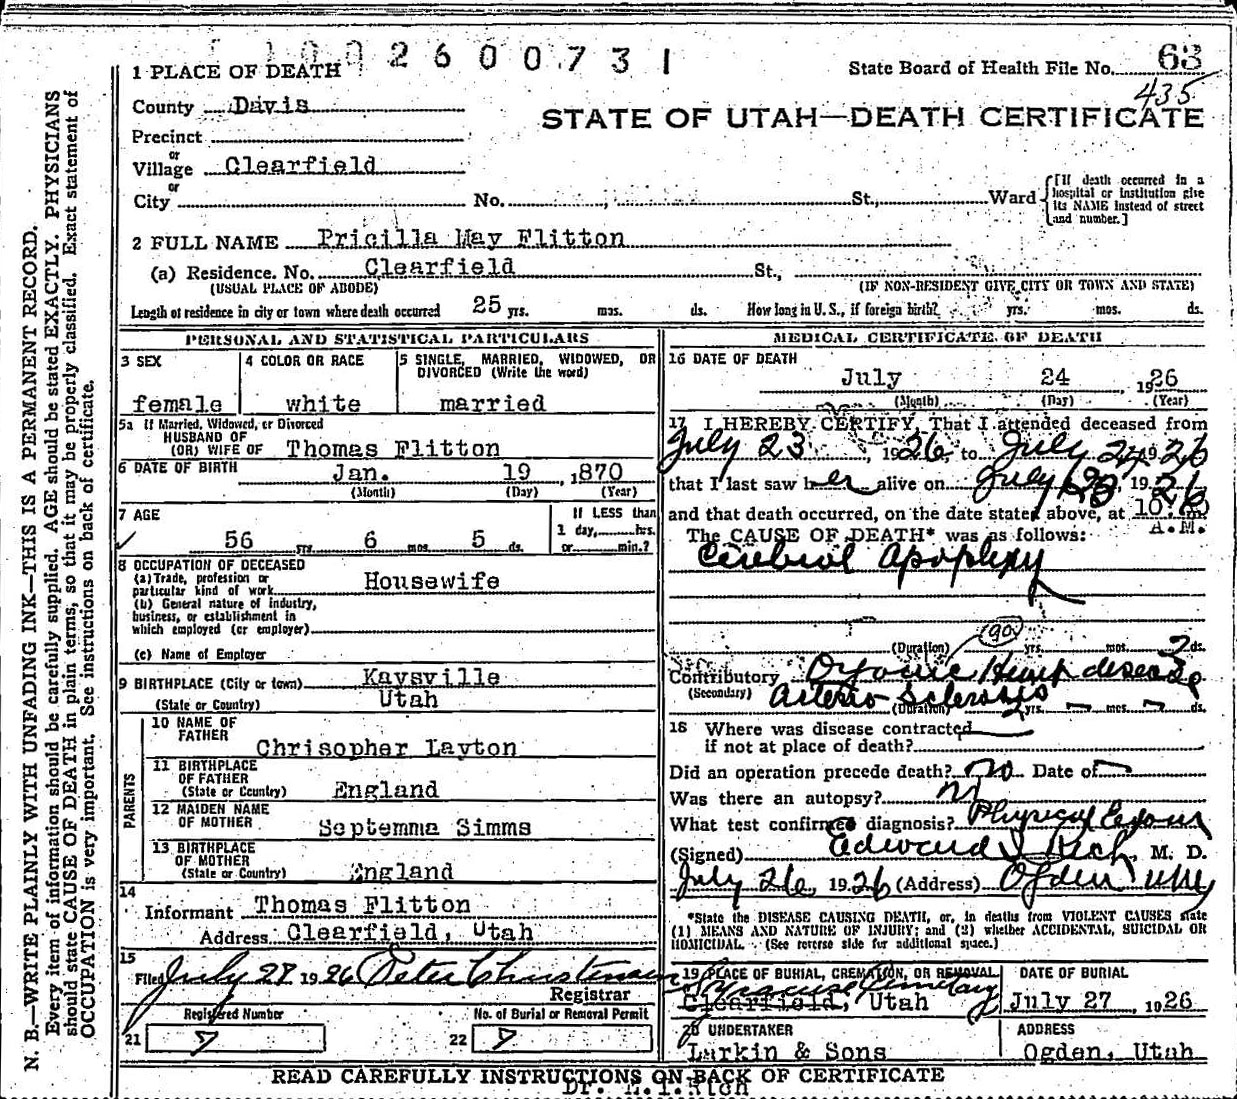 1002600731
1 PLACE OF DEATH
State Board of Health File No. 63
435
County Davis
STATE OF UTAH—DEATH CERTIFICATE
Precinct
or
Village Clearfield
or
City No. St., Ward
[If death occurred in a hospital or institution give its NAME instead of street and number.]
2 FULL NAME Pricilla May Flitton
(a) Residence. No. Clearfield St.,
(USUAL PLACE OF ABODE) (IF NON-RESIDENT GIVE CITY OR TOWN AND STATE)
Length of residence in city or town where death occurred 25 yrs. mos. ds. How long in U. S., if foreign birth? yrs. mos. ds.
PERSONAL AND STATISTICAL PARTICULARS
3 SEX
female
4 COLOR OR RACE
white
5 SINGLE, MARRIED, WIDOWED, OR
DIVORCED (Write the word)
married
5a If Married, Widowed, or Divorced
HUSBAND OF
(OR) WIFE OF Thomas Flitton
6 DATE OF BIRTH Jan. 19 , 1870
(Month) (Day) (Year)
7 AGE
56 yrs. 6 mos. 5 ds.
If LESS than
1 day, hrs.
or min.?
8 OCCUPATION OF DECEASED
(a) Trade, profession or
particular kind of work Housewife
(b) General nature of industry,
business, or establishment in
which employed (or employer)
(c) Name of Employer
9 BIRTHPLACE (City or town) Kaysville
(State or Country) Utah
PARENTS
10 NAME OF
FATHER
Chrisopher Layton
11 BIRTHPLACE
OF FATHER
(State or Country) England
12 MAIDEN NAME
OF MOTHER Septemma Simms
13 BIRTHPLACE
OF MOTHER
(State or Country) England
14
Informant Thomas Flitton
Address Clearfield, Utah
15
Filed July 27 1926 Peter Christensen
Registrar
Registered Number
21 7
No. of Burial or Removal Permit
22 7
MEDICAL CERTIFICATE OF DEATH
16 DATE OF DEATH
July 24 1926
(Month) (Day) (Year)
17 I HEREBY CERTIFY, That I attended deceased from
July 23, 1926, to July 24, 1926
that I last saw her alive on July 23, 1926
and that death occurred, on the date stated above, at 10. m.
A.M.
The CAUSE OF DEATH* was as follows:
Cerebral Apoplexy
90
(Duration) yrs. mos. 2 ds.
Contributory Organic Heart disease
(Secondary) Arterio Sclerosis
(Duration) 2 yrs. — mos. — ds.
18 Where was disease contracted
if not at place of death?
Did an operation precede death? no Date of —
Was there an autopsy? no
What test confirmed diagnosis? Physical Exam
(Signed) Edward I Rich, M. D.
July 26, 1926 (Address) Ogden Utah
*State the DISEASE CAUSING DEATH, or, in deaths from VIOLENT CAUSES state
(1) MEANS AND NATURE OF INJURY; and (2) whether ACCIDENTAL, SUICIDAL OR
HOMICIDAL. (See reverse side for additional space.)
19 PLACE OF BURIAL, CREMATION, OR REMOVAL
Syracuse Cemetary
Clearfield, Utah
DATE OF BURIAL
July 27 , 1926
20 UNDERTAKER
Larkin & Sons
ADDRESS
Ogden, Utah
READ CAREFULLY INSTRUCTIONS ON BACK OF CERTIFICATE
Dr. E.I.Rich
N. B.—WRITE PLAINLY WITH UNFADING INK—THIS IS A PERMANENT RECORD.
Every item of information should be carefully supplied. AGE should be stated EXACTLY. PHYSICIANS
should state CAUSE OF DEATH in plain terms, so that it may be properly classified. Exact statement of
OCCUPATION is very important. See instructions on back of certificate.